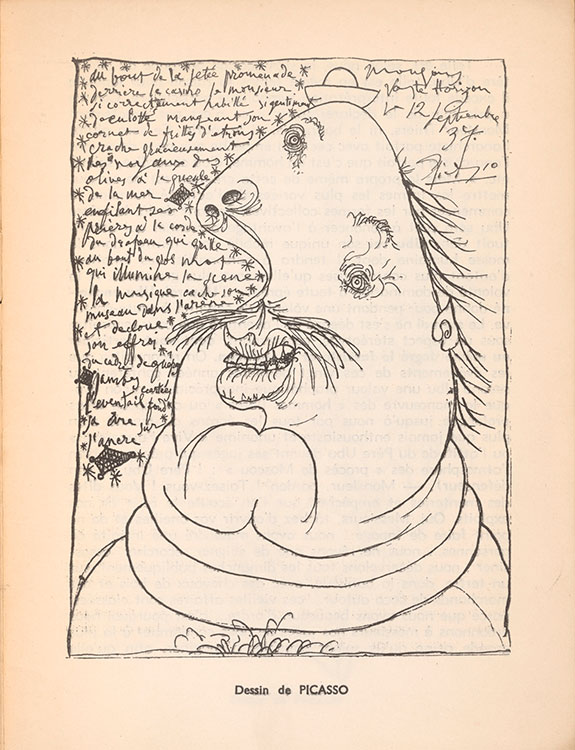 du bout de la jetée promenade
derrière le casino le monsieur
si correctement habillé si gentiment
déculotté mangeant son
cornet de frites d'étrons
crache gracieusement
les noyaux des
olives à la gueule
de la mer
enfilant ses
prières à la corde
du drapeau qui grille
au bout du gros mot
qui illumine la scène
la musique cache son
museau dans l'arène
et décloue
son effroi
du cadre de guêpes
jambes écartées
l'éventail fond
sa cire sur
l'ancre
Mougins
Vaste Horizon
le 12 septembre
37
Picasso
Dessin de PICASSO